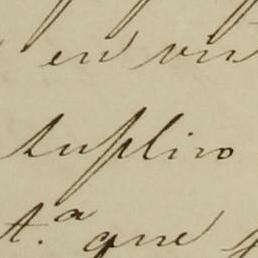 en vir
suplico
t.ª que